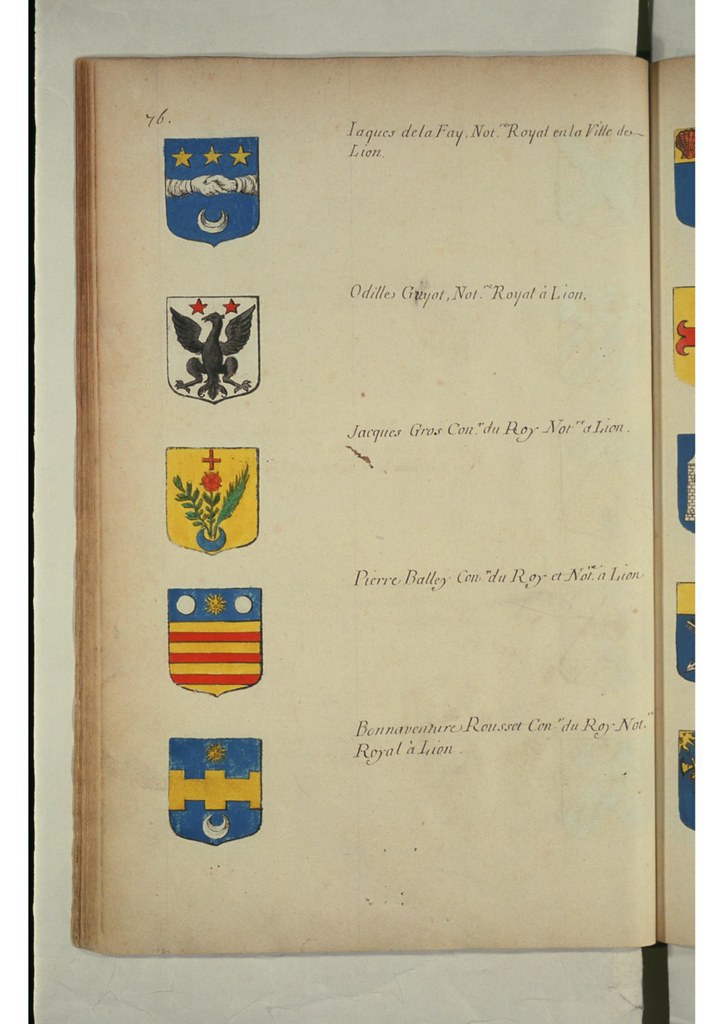 76.
Iaques de la Fay, Not.re Royal en la Ville de
Lion.
Odilles Guyot, Not.re Royal à Lion.
Jacques Gros Con.r du Roy Not.re a Lion.
Pierre Balley Con.r du Roy et Not.re à Lion
Bonnaventure Rousset Con.r du Roy Not.re
Royal à Lion.